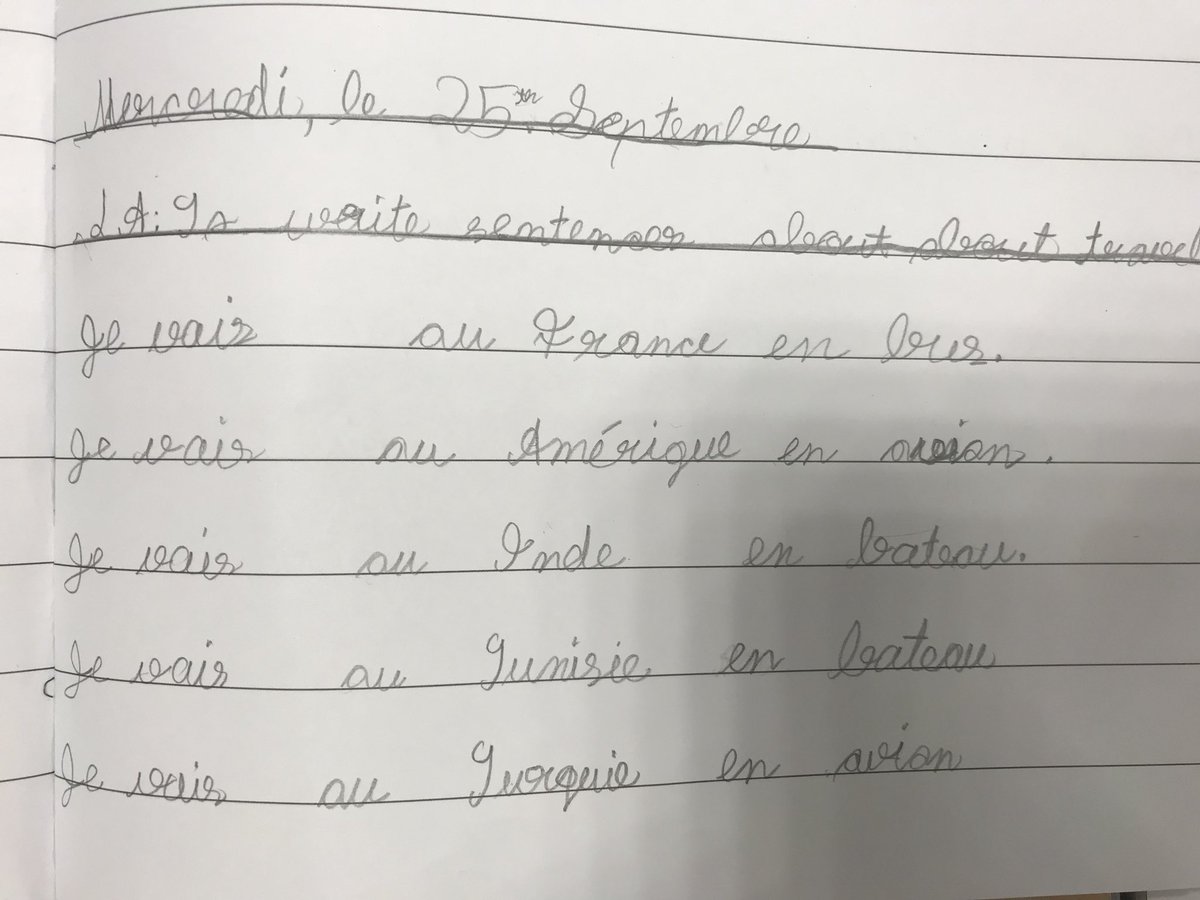 Mercredi, le 25th Septembre
L.A: To write sentences about about travel
Je vais au France en bus.
Je vais au Amérique en avion.
Je vais au Inde en bateau.
Je vais au Tunisie en bateau
Je vais au Turquie en avion